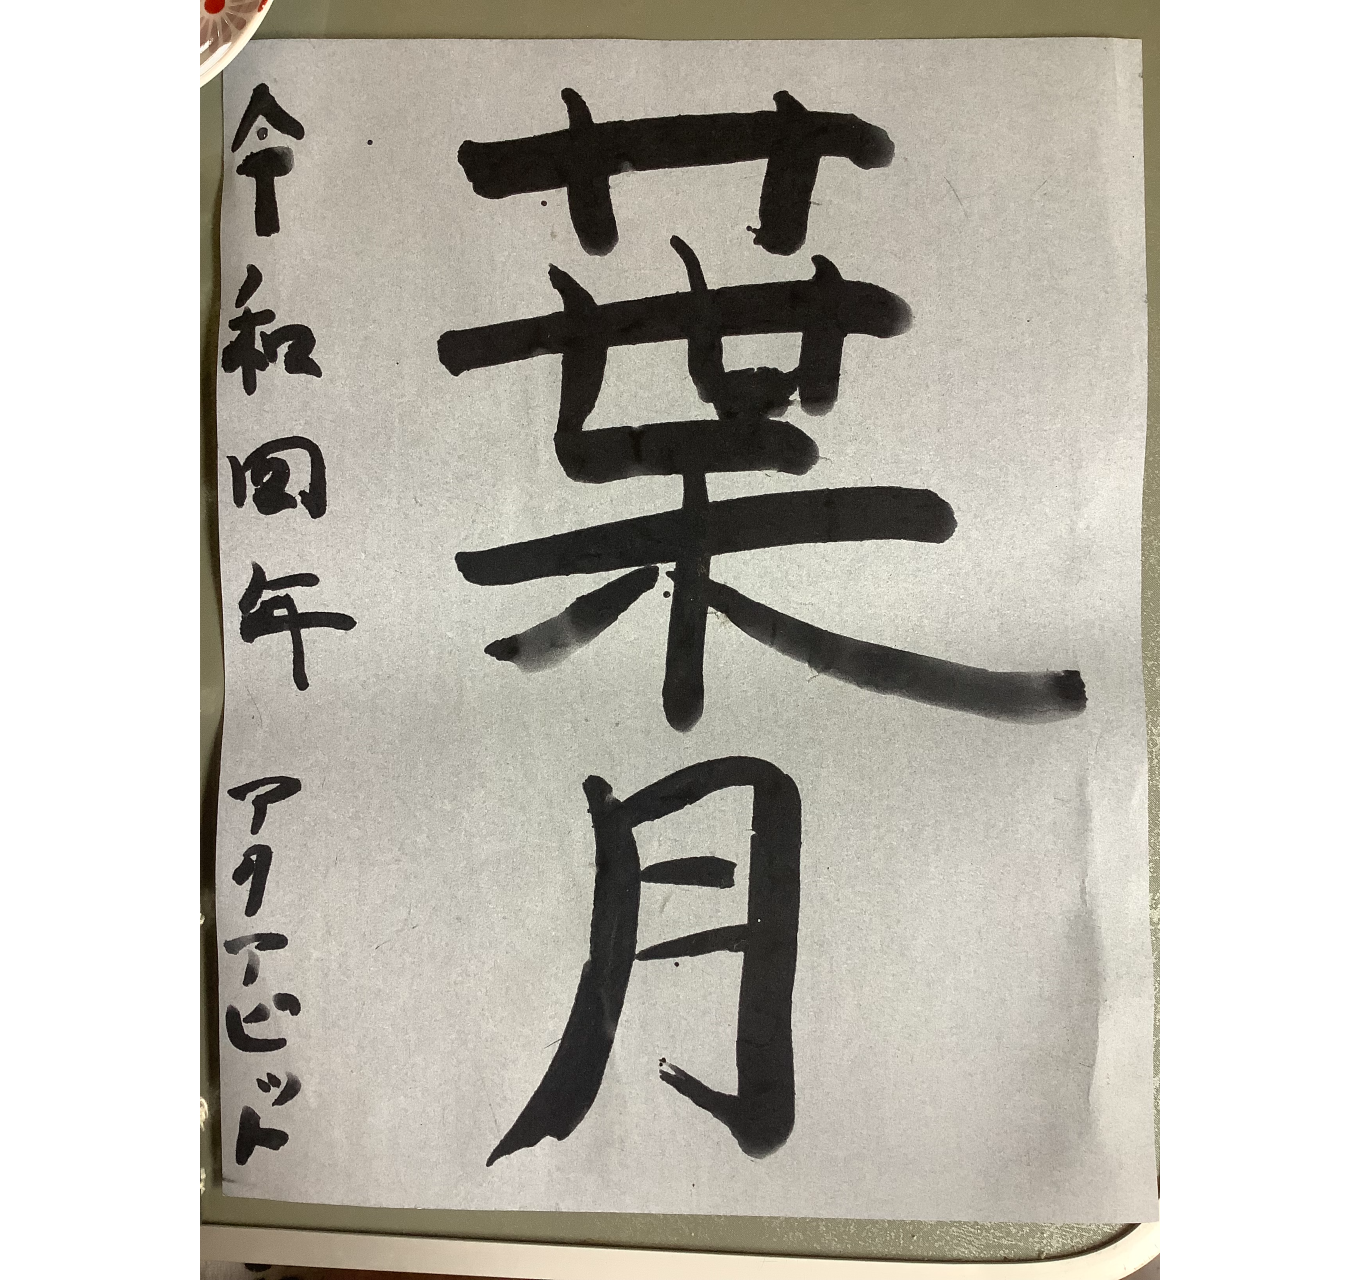 葉月
令和四年 アタアピット